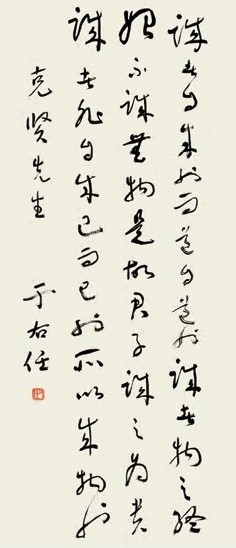 誠者自成也而道自道也誠者物之終
始不誠無物是故君子誠之為貴
誠者非自成己而已也所以成物也
克賢先生 于右任